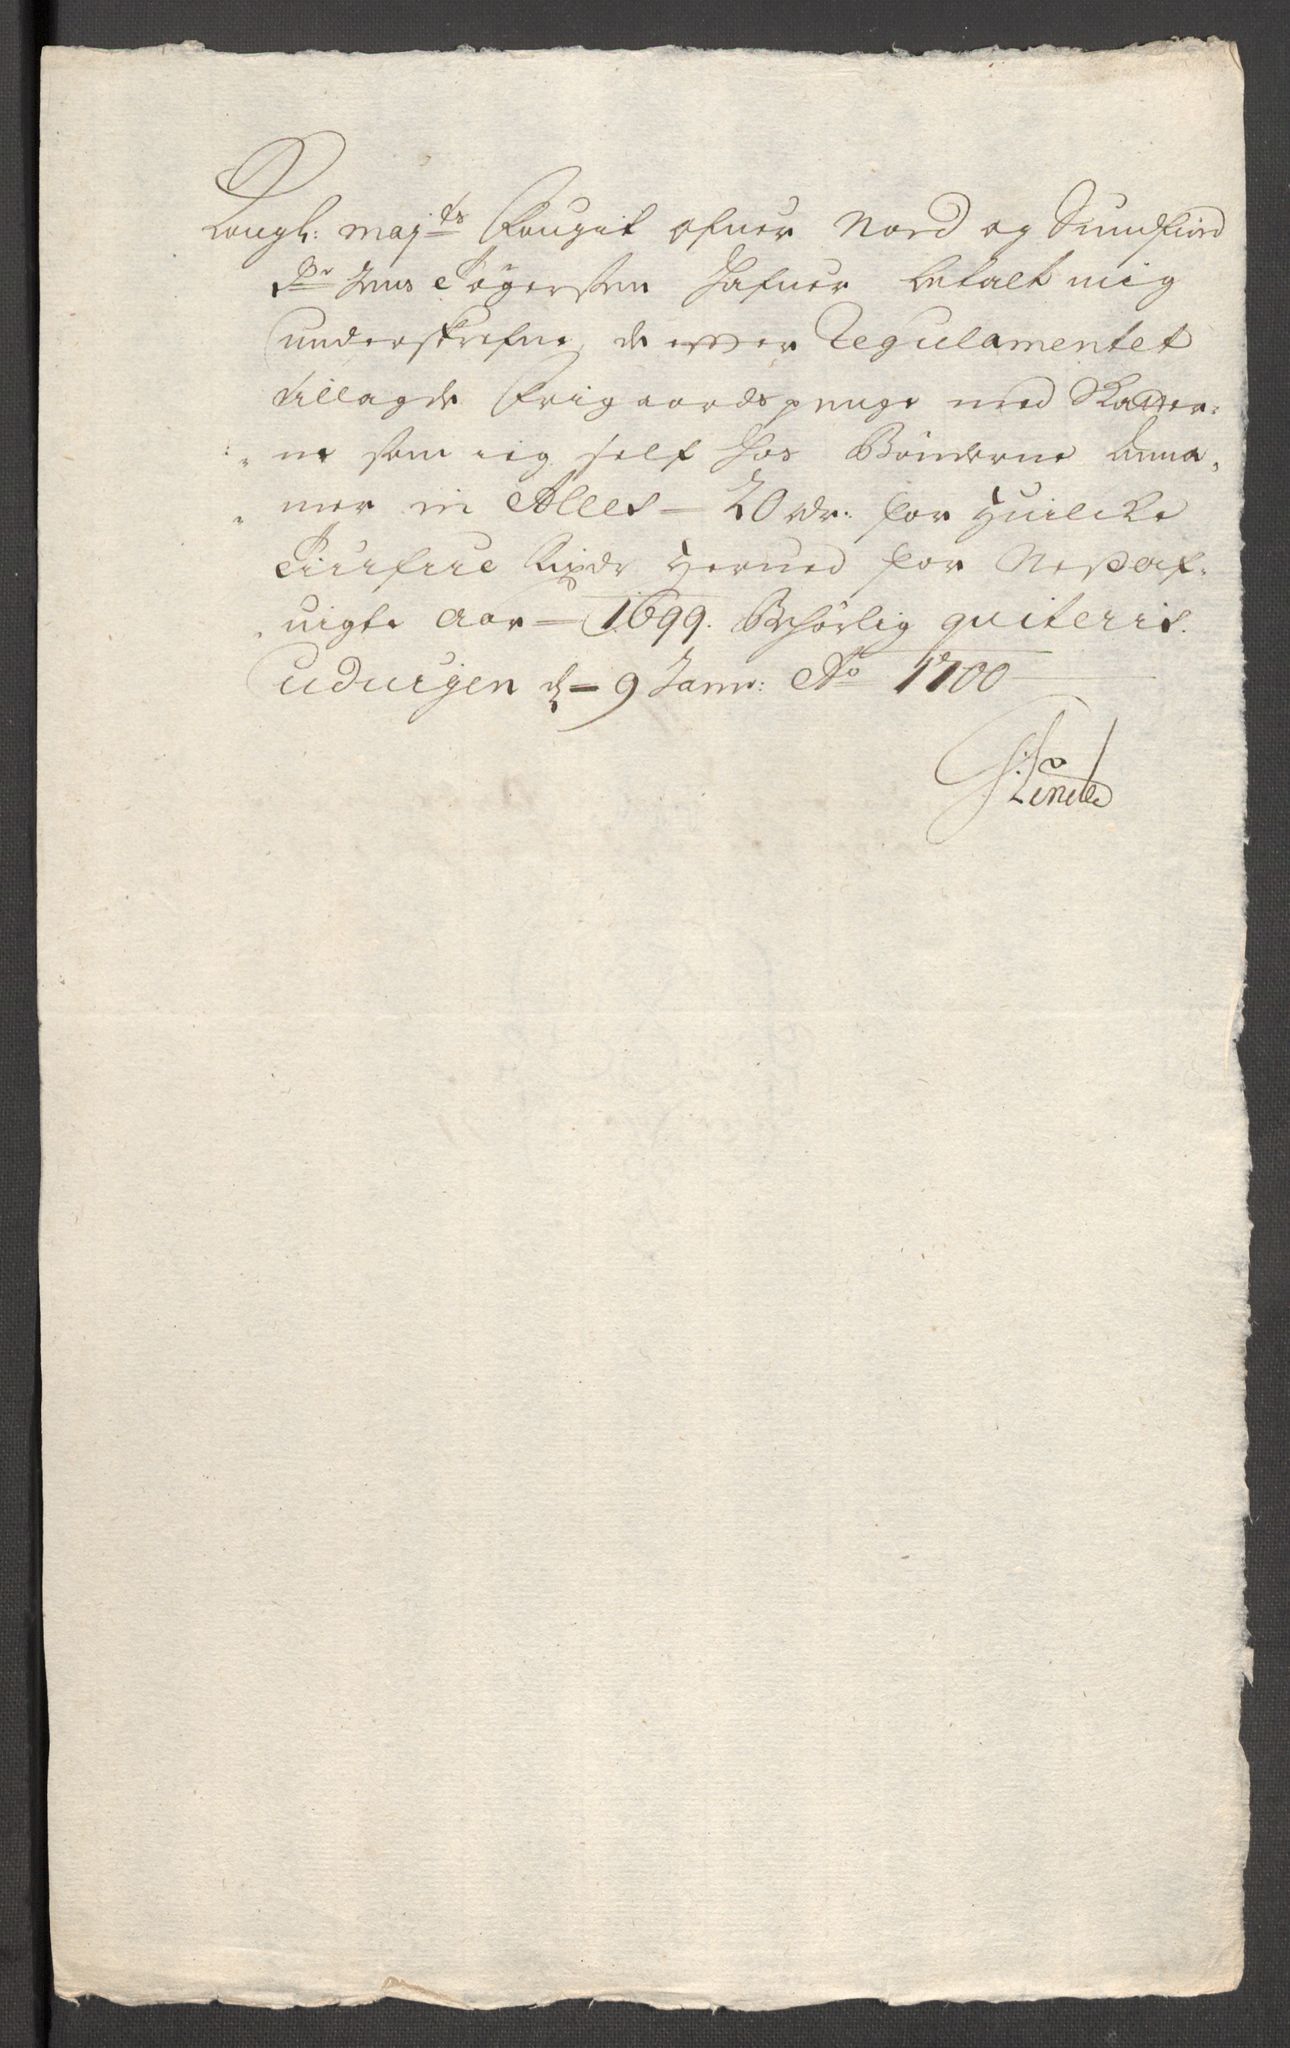 Kongl: maj:ts Fougit ofuer Nord og Sundfiord
Sr Jens Pøgersen hafuer betalt mig
underskrefne, de effter Regulamentet
tillagde Frigaards penge med Skatter-
ne som ieg self hos Bønderne anna-
mer in Alles — 20 rdr: for huilcke
Tiufue Rixdr hermed for Nestaf-
uigte Aar — 1699. Behørlig quiterit.
Uduigen d — 9 Janr: Ao 1700